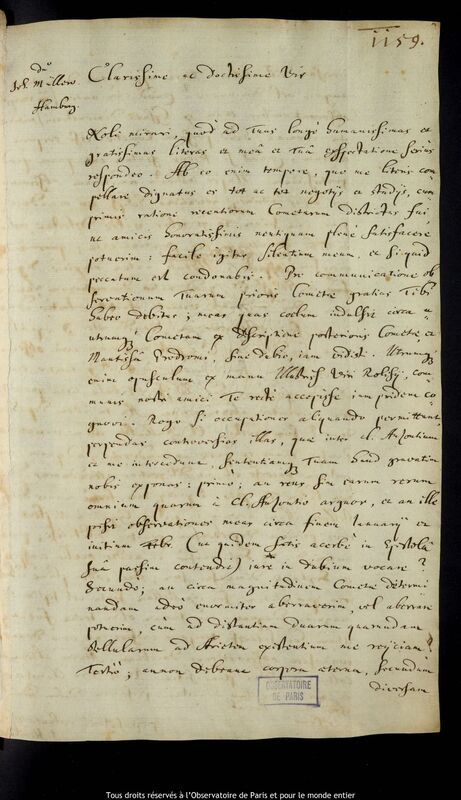 1159.
dno
Joh. Müllero
Hamburg.
Clarissime ac Doctissime Vir
Noli mirari, quod ad Tuas longè humanissimas et
gratissimas literas et meâ et Tuâ exspectatione seriùs
respondeo. Ab eo enim tempore, quo me literis com
pellare dignatus es tot ac tot negotijs et studijs, cum
primis ratione recentiorum Cometarum districtus fui
ut amicis honoratissimis neutiquam plenè satisfacere
potuerim: facile igitur silentium meum, et si quid
peccatum est condonabis. Pro communicatione ob
servationum Tuarum prioris Cometæ gratias Tibi
habeo debitas; meas quas coelum indulsit circa
utrumq; Cometam ex descriptione posterioris Cometæ et
Mantissâ Prodromi, sine dubio, iam vidisti. Utrumq;
enim opusculum ex manu Illustris Viri com
munis nostri amici Te rectè accepisse iam pridem co
gnovi. Rogo si occupationes aliquando permittunt,
perpendas controversias illas, quæ inter cl. Auzoutium
et me intercedunt, sententiamq; Tuam haud gravatim
nobis exponas: primò; an reus sim earum rerum
omnium quarum à Cl. Auzoutio arguor, et an ille
possit observationes meas circa finem Januarij et
initium Febr. (Cui quidem satis acerbè in Epistolâ
suâ passim contendit) iure in dubium vocare?
Secundò; an circa magnitudinem Cometæ determi
nandam adeò enormiter aberraverim, vel aberrare
potuerim, cùm ad distantiam duarum quarundam
stellularum ad Arietem existentium me rejiciam?
Tertiò; annon debeant corpora æterna, secundùm
diversam
OBSERVATOIRE
DE PARIS
Tous droits réservés à l'Observatoire de Paris et pour le monde entier